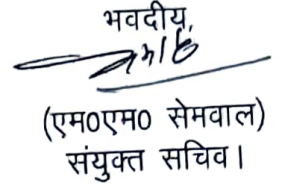 भवदीय,
(एम0एम0 सेमवाल)
संयुक्त सचिव।